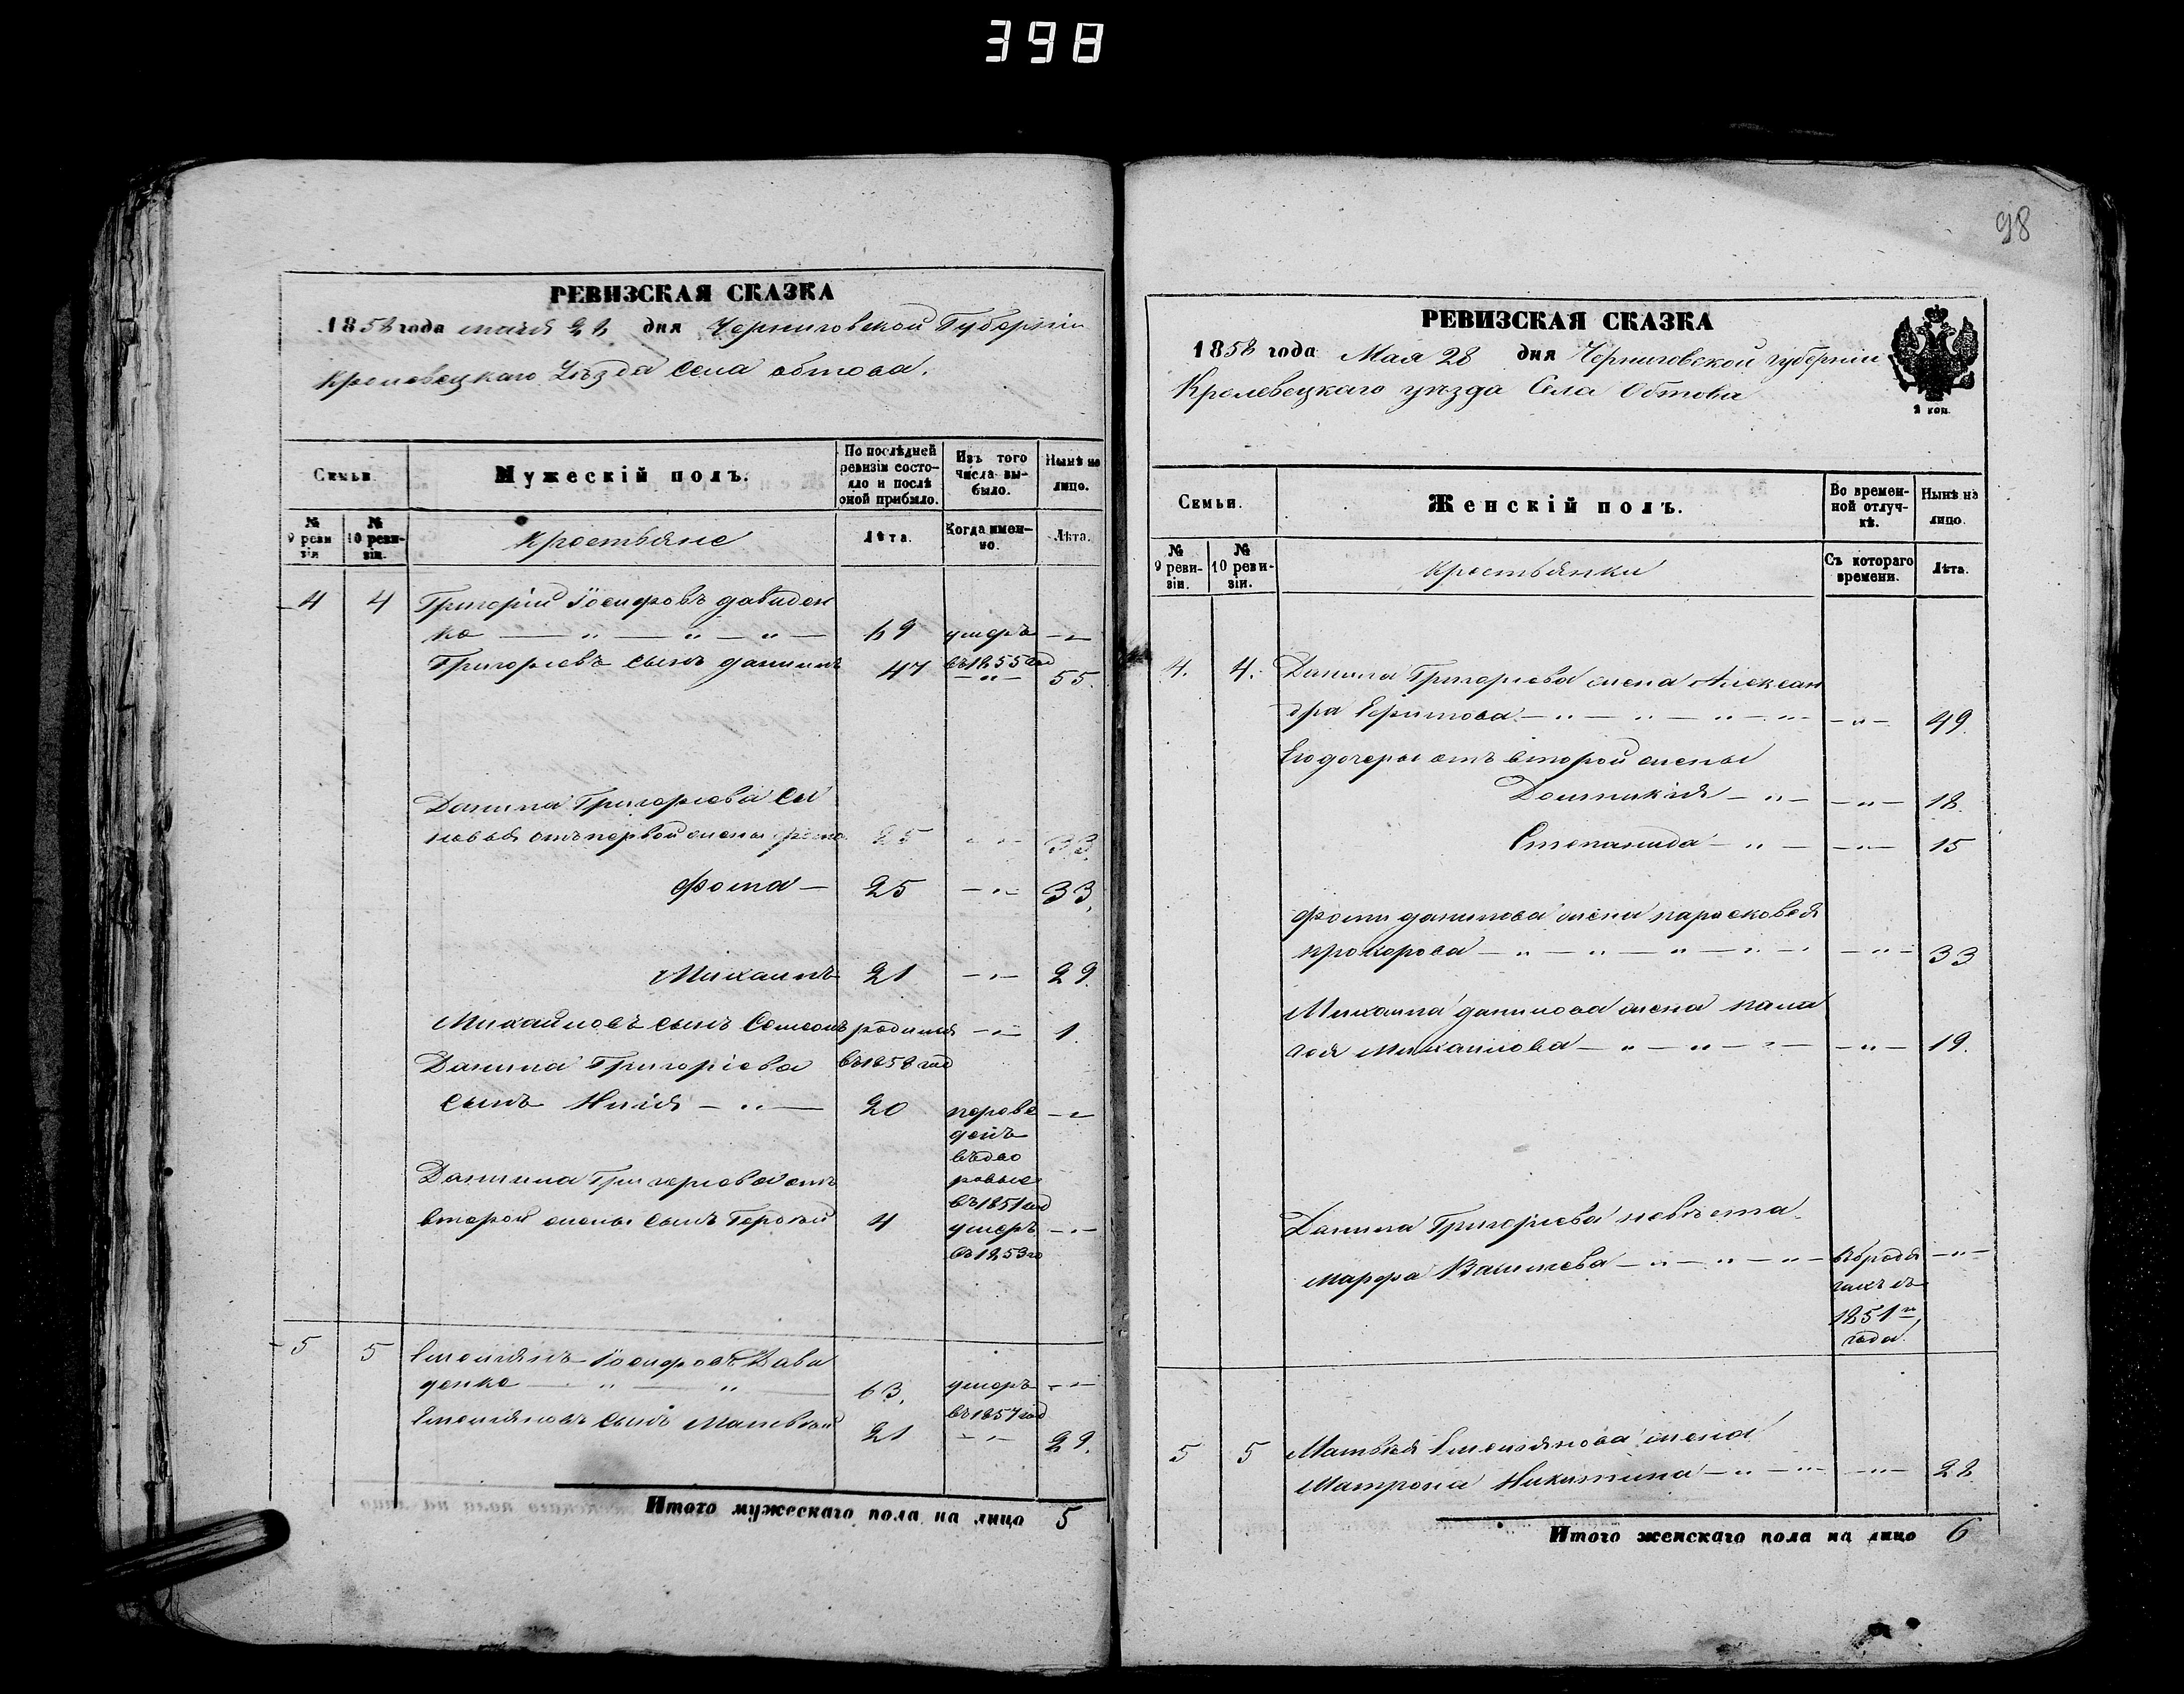 398
РЕВИЗСКАЯ СКАЗКА
1858 года мая 28 дня Черниговской Губерніи
Кролевецкаго Уѣзда Села Обтова.
Семьи.
Мужескій полъ.
По послѣдней ревизіи состояло и послѣ оной прибыло.
Изъ того числа выбыло.
Нынѣ на лицо.
№ 9 ревизіи
№ 10 ревизіи.
Крестьяне
Лѣта.
Когда именно.
Лѣта.
4 4 Григорій Іосифовъ Давиден
ко — „ — „ — „ — 69 умеръ — „ —
Григорьевъ сынъ Данило 47 въ 1855 год
— „ — 55.
Данила Григорьева сы
новья отъ первой жены Фома 25 — „ — 33.
Фома — 25 — „ — 33.
Михаилъ 21 — „ — 29.
Михайловъ сынъ Самсонъ родился — „ — 1.
Данила Григоріева въ 1858 год
сынъ Илія — „ — 20 переве — „ —
денъ
въ дво
ровые
Данила Григорьева отъ
въ 1851 год
второй жены сынъ 4 умеръ — „ —
въ 1853 го
5 5 Емельянъ Іосифовъ Дави
денко — „ — „ — 63. умеръ — „ —
Емельяновъ сынъ Матвѣй въ 1857 год
21 — „ — 29.
Итого мужескаго пола на лицо 5
98
РЕВИЗСКАЯ СКАЗКА
1858 года Мая 28 дня Черниговской губерніи
Кролевецкаго уѣзда Села Обтова
2 коп.
Семьи.
Женскій полъ.
Во временной отлучкѣ.
Нынѣ на лицо.
№ 9 ревизіи.
№ 10 ревизіи.
Крестьянки
Съ котораго времени.
Лѣта.
4. 4. Данила Григорьева жена Алексан
дра Ефимова — „ — „ — „ — „ — — „ — 49
Его дочеры отъ второй жены
Домникія — „ — — „ — 18.
Степанида — „ — — „ — 15
Фомы Данилова жена Парасковея
Прохорова — „ — „ — „ — „ — — „ — 33
Михаила Данилова жена Пала
гея Михайлова — „ — „ — „ — — „ — 19.
Данила Григорьева невѣстка
Марфа Васильева — „ — „ — „ — въ бродя — „ —
гахъ съ
1851 го
года.
5 5 Матвѣя Емельянова жена
Матрона Никитина — „ — „ — — „ — 28
Итого женскаго пола на лицо 6